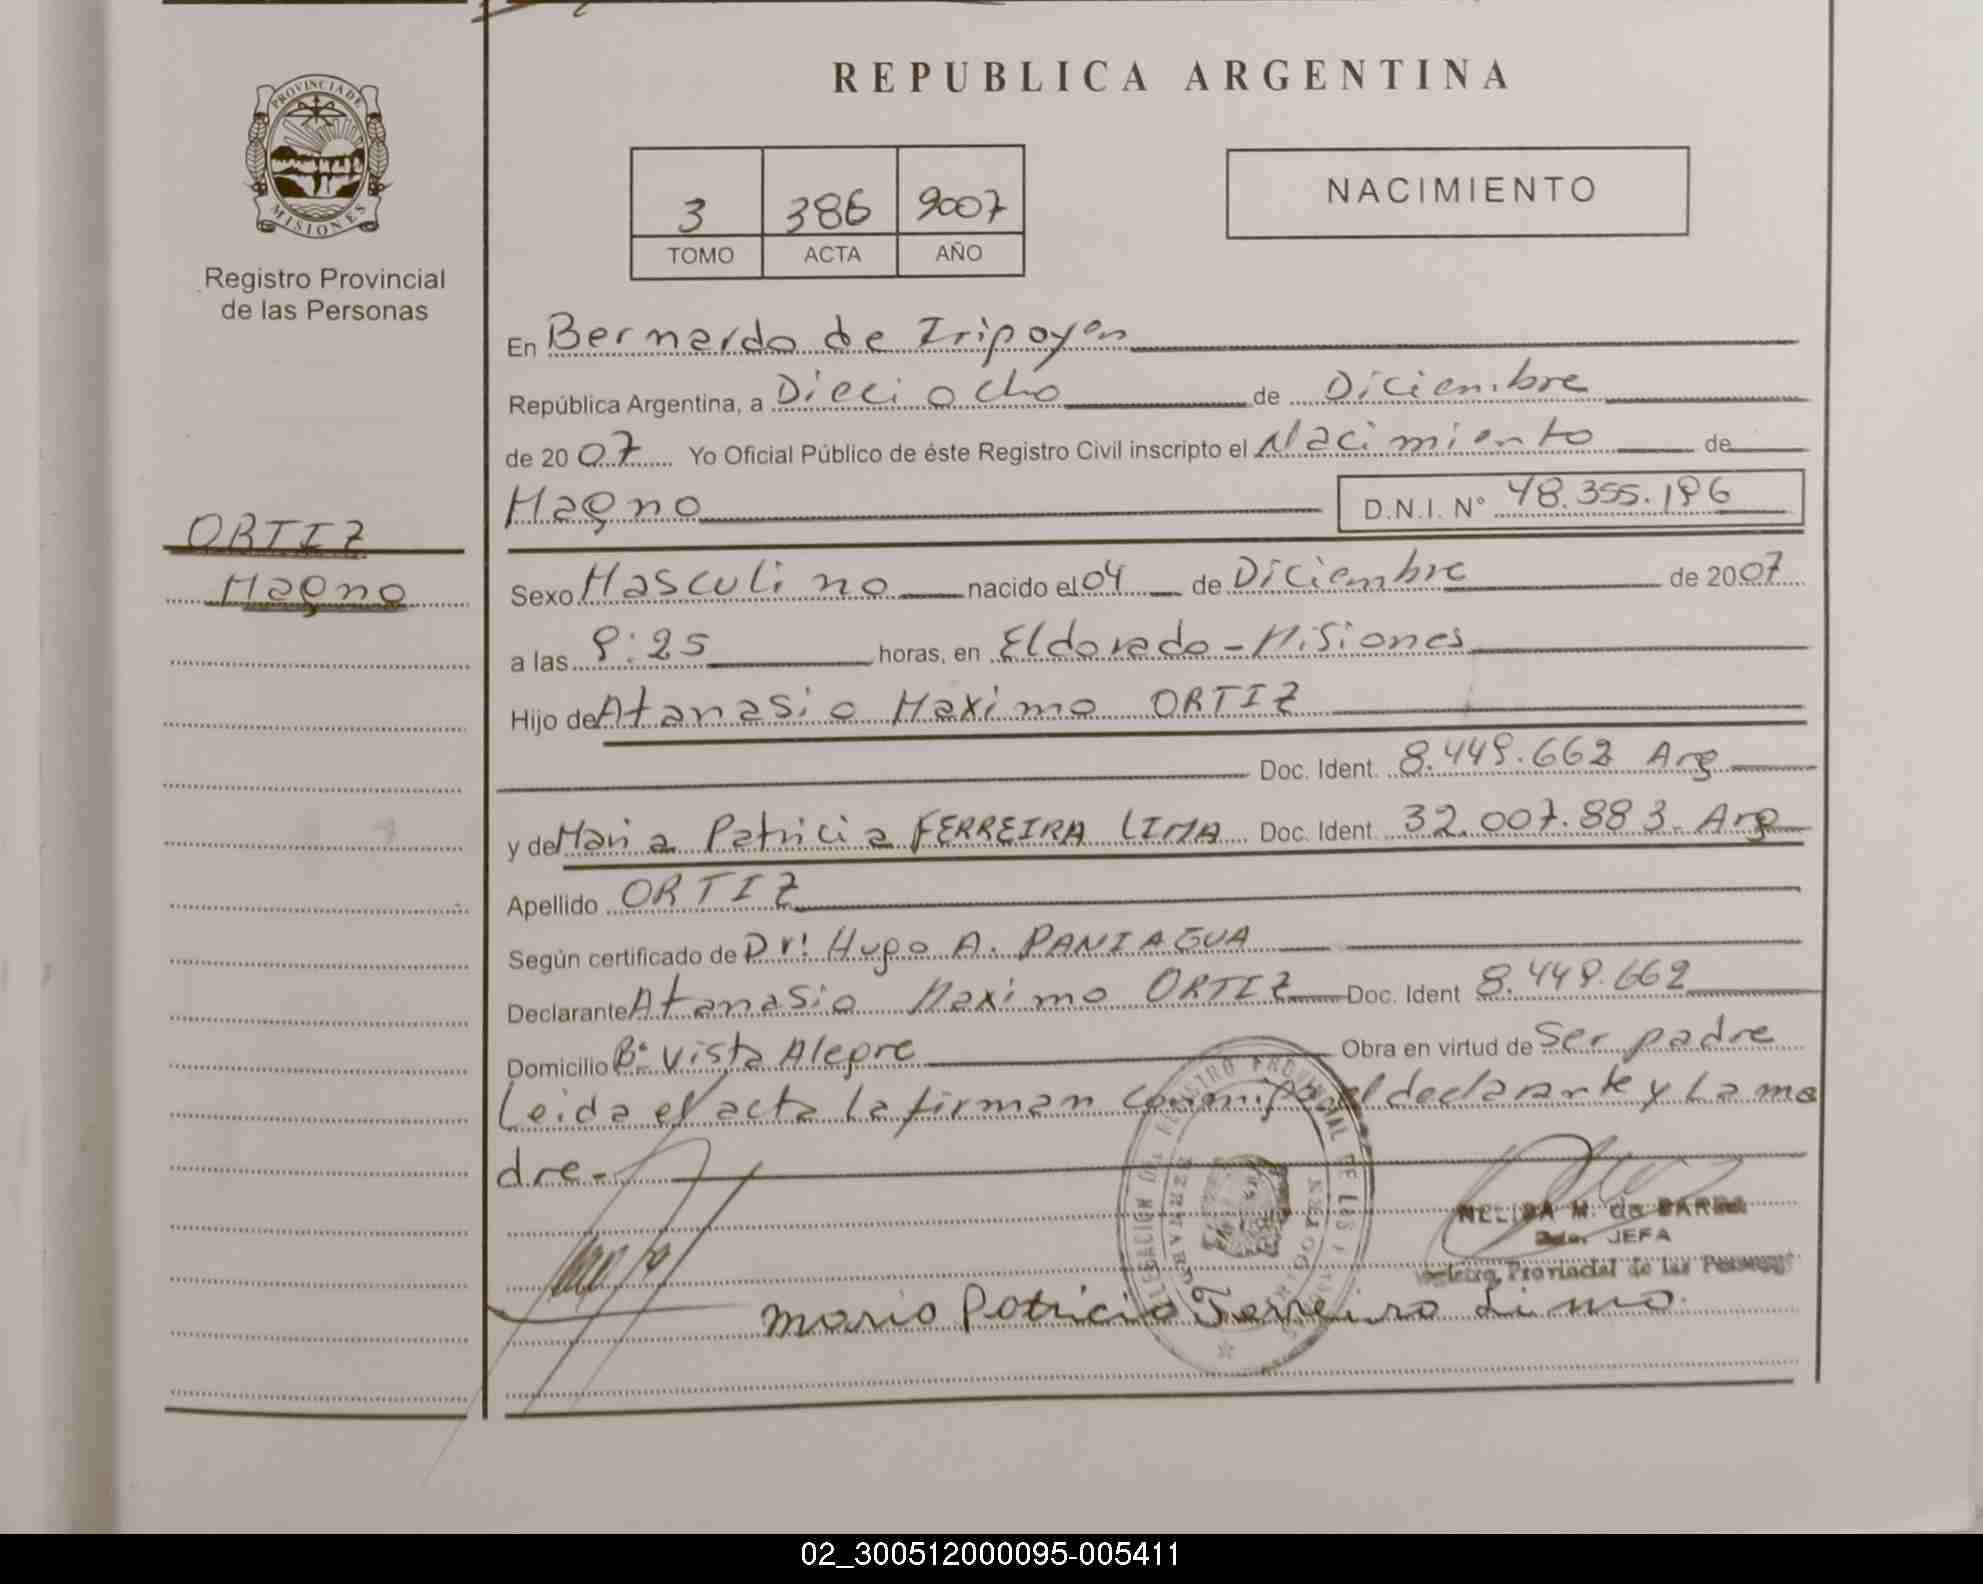 PROVINCIA DE
MISIONES
Registro Provincial
de las Personas
ORTIZ
Magno
REPUBLICA ARGENTINA
3 386 2007
TOMO ACTA AÑO
NACIMIENTO
En Bernardo de Iripoyen
República Argentina, a Dieciocho de Diciembre
de 2007 Yo Oficial Público de éste Registro Civil inscripto el Nacimiento de
Magno D.N.I. N° 48.355.196
Sexo Masculino nacido el 04 de Diciembre de 2007
a las 9:25 horas, en Eldorado - Misiones
Hijo de Atanasio Maximo ORTIZ
Doc. Ident. 8.449.662 Arg
y de Maria Patricia FERREIRA LIMA Doc. Ident. 32.007.883 - Arg
Apellido ORTIZ
Según certificado de Dr: Hugo A. PANIAGUA
Declarante Atanasio Maximo ORTIZ Doc. Ident 8.449.662
Domicilio B° Vista Alegre Obra en virtud de Ser padre
Leida el acta la firman conmigo el declarante y La ma
dre -
NELIDA M. de
JEFA
Provincial de las Personas
Maria Patricia Ferreira Lima.
02_300512000095-005411